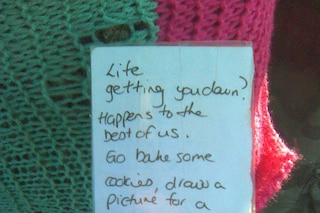 Life
getting you down?
Happens to the
best of us.
Go bake some
cookies, draw a
picture for a